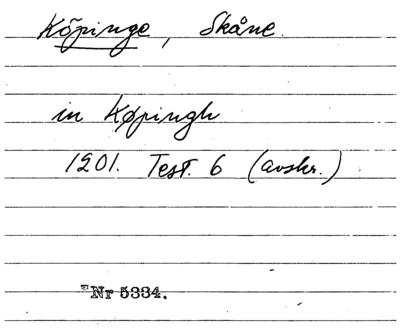 Köpinge, Skåne.
in Køpingh
1201. Test. 6 (avskr.)
Nr 5334.